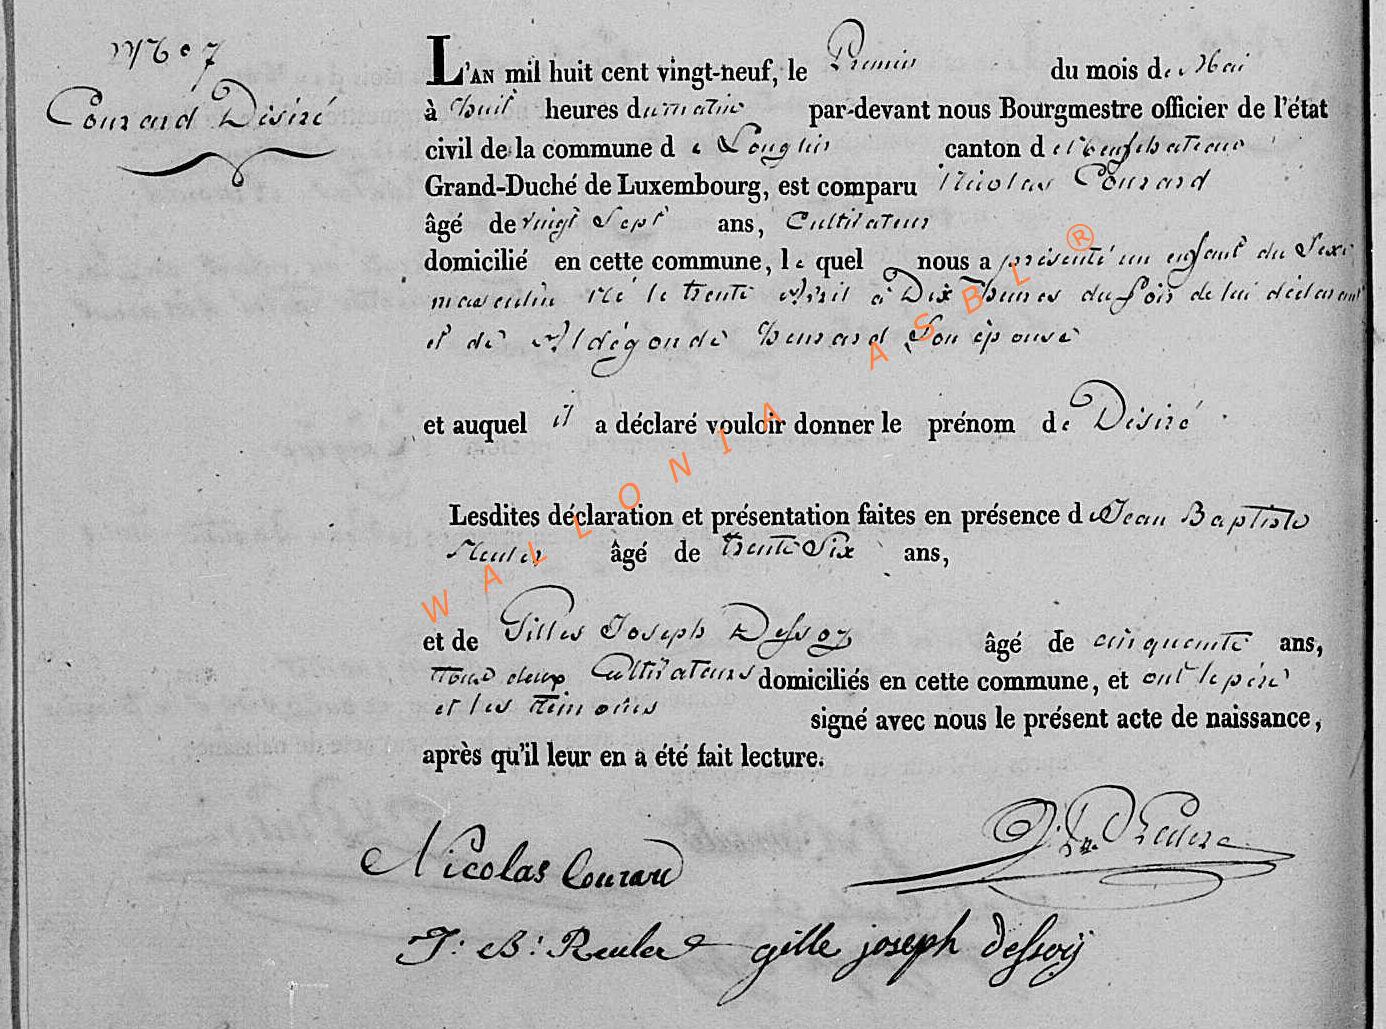 N.o 7
Courard Désiré
L'AN mil huit cent vingt-neuf, le Premier du mois de Mai
à huit heures du matin par-devant nous Bourgmestre officier de l'état
civil de la commune de Longlier canton de Neufchateau
Grand-Duché de Luxembourg, est comparu Nicolas Courard
âgé de vingt Sept ans, Cultivateur
domicilié en cette commune, le quel nous a présenté un enfant du Sexe
masculin né le trente Avril à Dix heures du soir de lui déclarant
et de Aldégonde henrard Son épouse
et auquel il a déclaré vouloir donner le prénom de Désiré
Lesdites déclaration et présentation faites en présence de Jean Baptiste
Reuler âgé de trente Six ans,
et de Gilles Joseph Dessoy âgé de cinquente ans,
tous deux Cultivateurs domiciliés en cette commune, et ont le père
et les témoins signé avec nous le présent acte de naissance,
après qu'il leur en a été fait lecture.
Nicolas Courard
J: B: Reuler gille joseph dessoÿ
WALLONIA ASBL ®